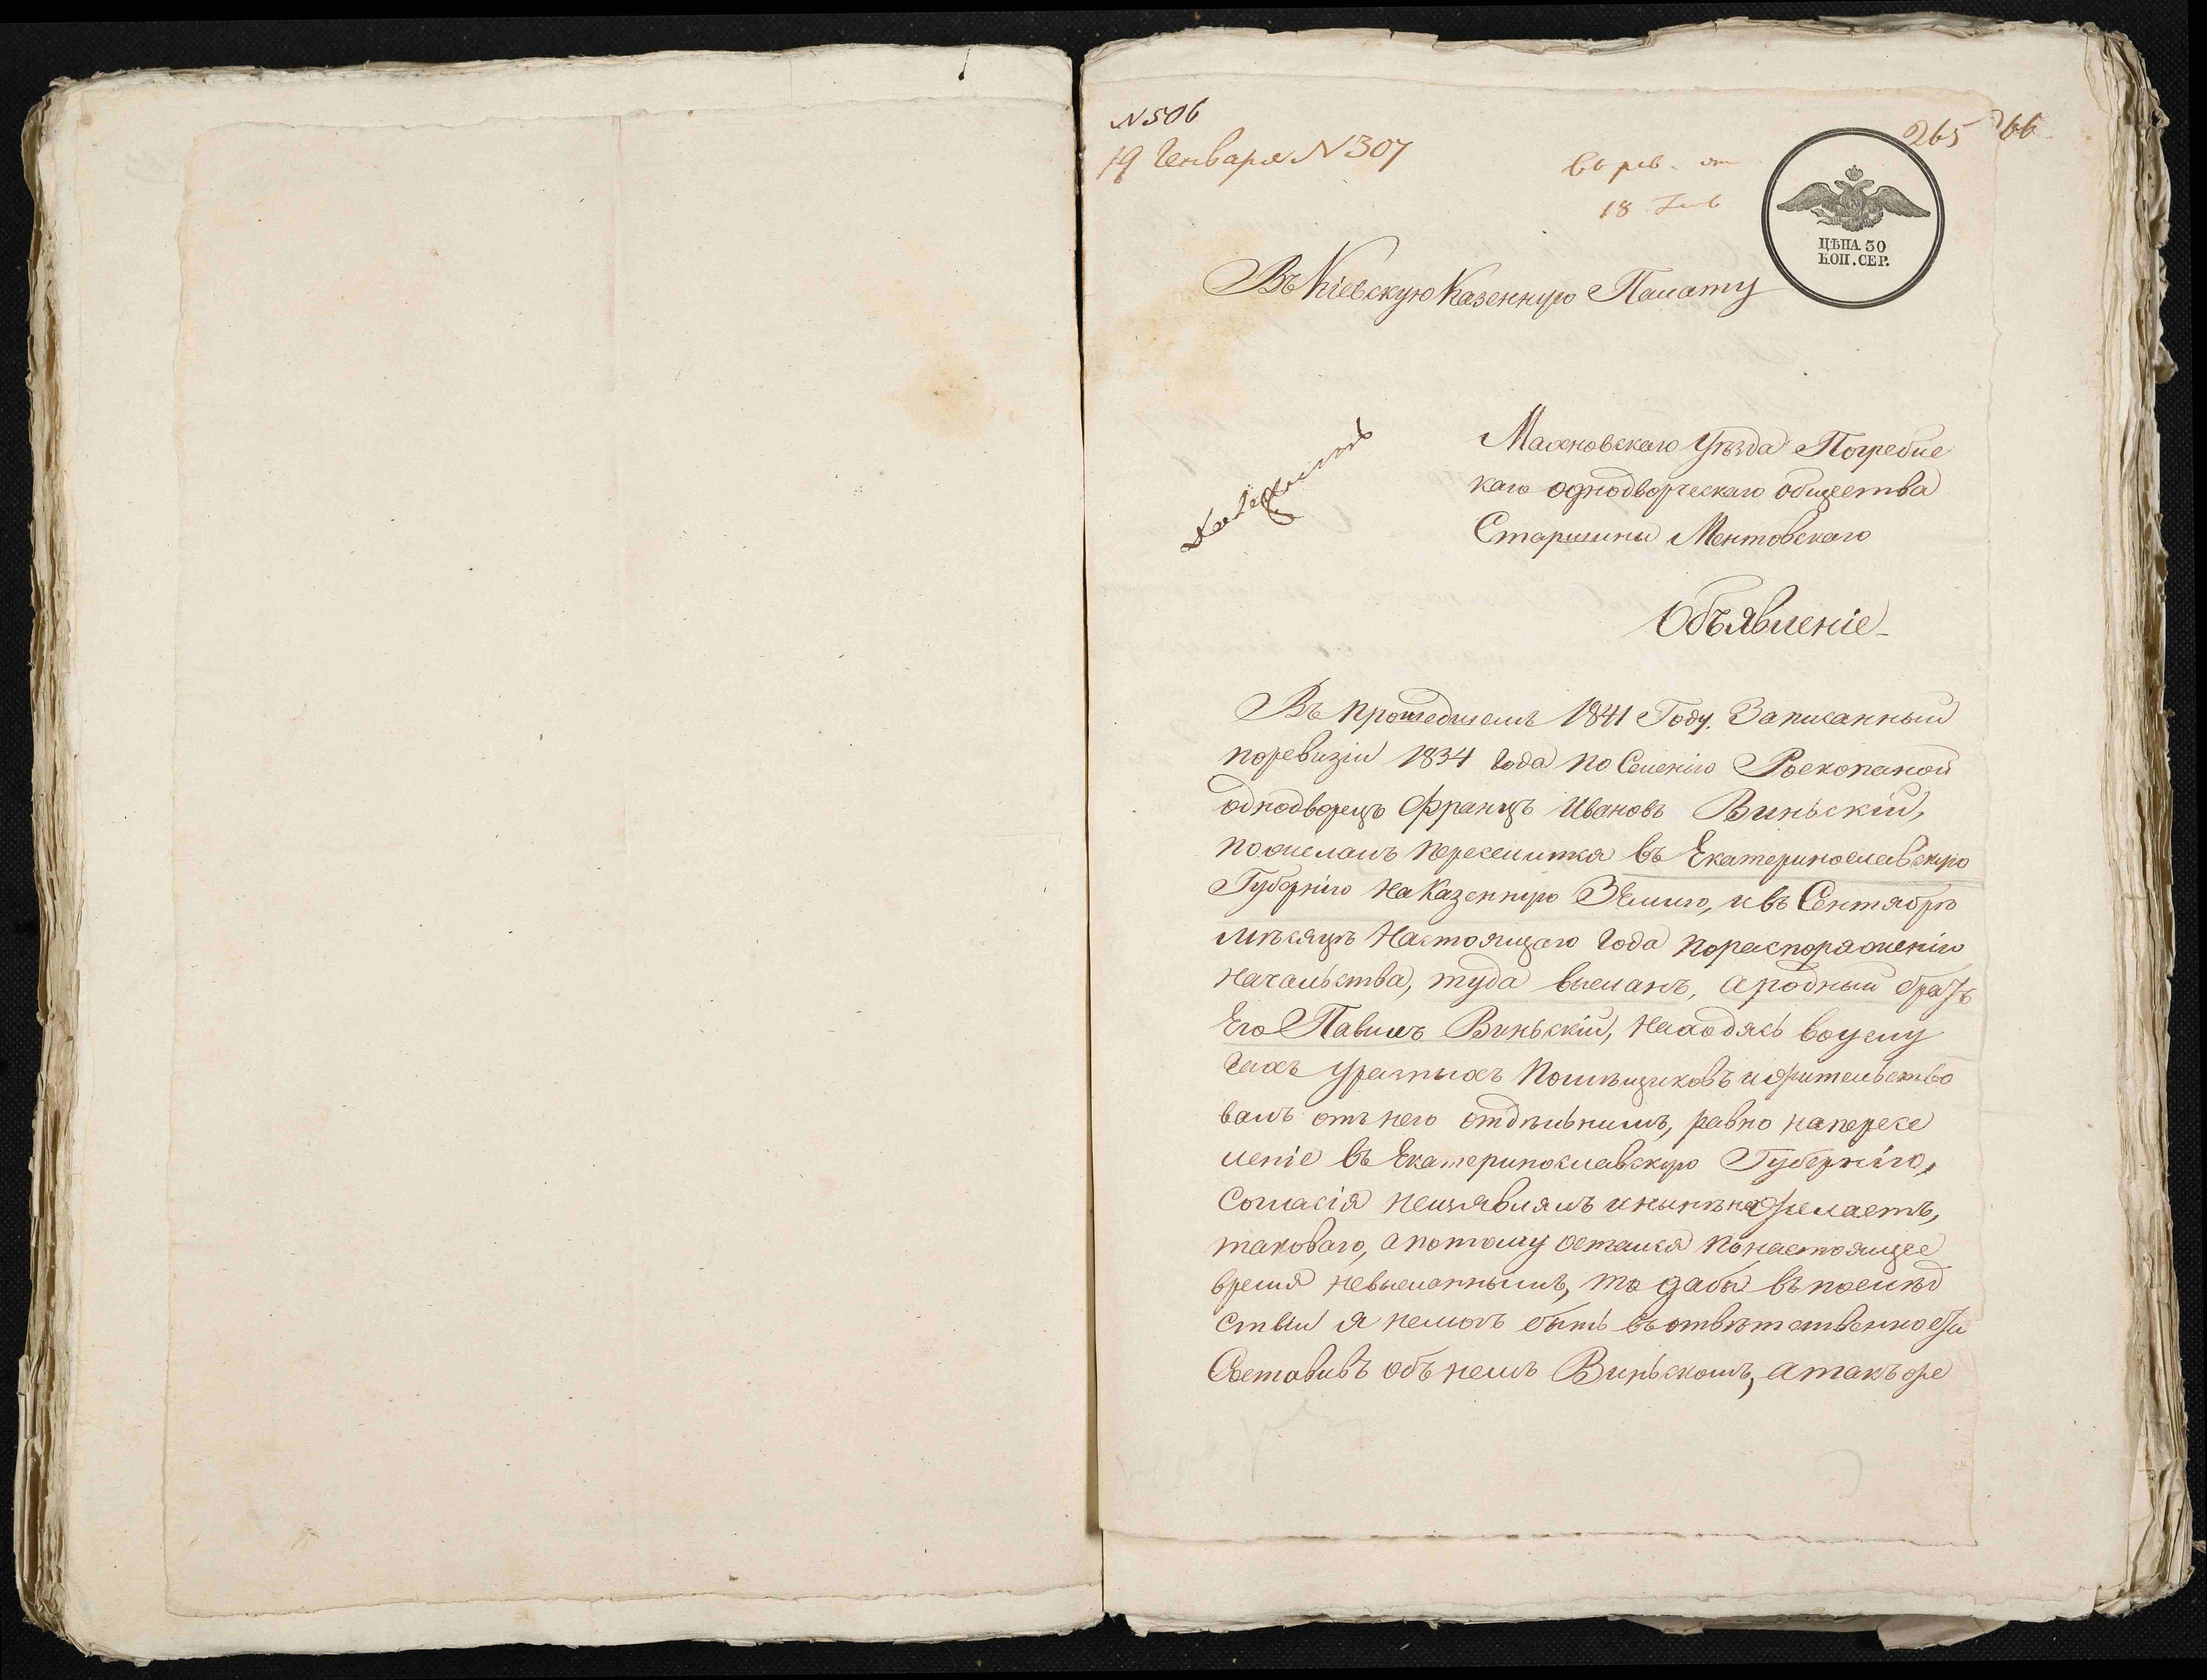 N 506
19 Генваря N 307
265 266
въ рев. от
18 Генв
ЦѢНА 30
КОП. СЕР.
Въ Кіевскую Казенную Палату
Махновскаго Уѣзда Погребис
каго однодворческаго общества
Старшины Ментовскаго
Объявленіе
Въ прошедшемъ 1841 Году. Записанный
поревизіи 1834 Года по Селенію Роскопаной
однодворецъ Францъ Ивановъ Виньскій,
пожелалъ переселится въ Екатеринославскую
Губернію на Казенную Землю, и въ Сентябрѣ
мѣсяцѣ Настоящаго Года пораспоряженію
начальства, туда высланъ, а родный братъ
Его Павилъ Виньскій, находясь воуслу
Гахъ уразныхъ Помѣщиковъ ижительство
валъ отъ него отдѣльнимъ, равно напересе
леніе въ Екатеринославскую Губернію,
Согласія неизявлялъ инынѣ нежелаетъ,
таковаго, а потому остался понастоящее
время невысланнымъ, то дабы въ послѣд
ствіи я немогъ быть въ отвѣтственности
Составивъ объ немъ Виньскомъ, а такъ же